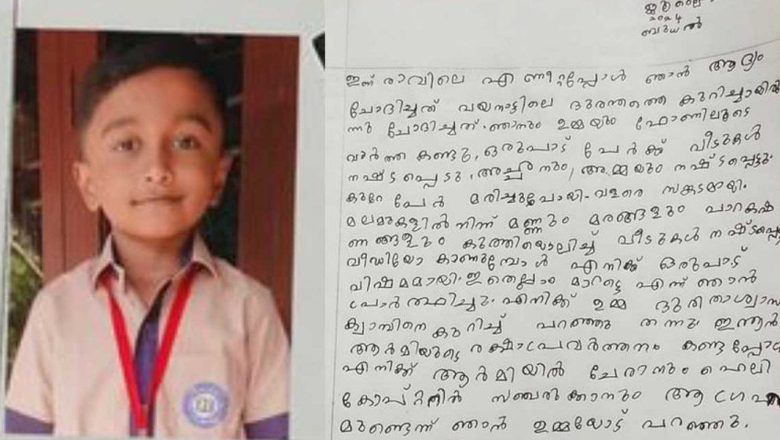 ജൂലൈ
2024
ബുധൻ
ഇന്ന് രാവിലെ എണീറ്റപ്പോൾ ഞാൻ ആദ്യം
ചോദിച്ചത് വയനാട്ടിലെ ദുരന്തത്തെ കുറിച്ചായിരു
ന്നു ചോദിച്ചത്. ഞാനും ഉമ്മയും ഫോണിലൂടെ
വാർത്ത കണ്ടു. ഒരുപാട് പേർക്ക് വീടുകൾ
നഷ്ടപ്പെട്ടു, അച്ഛനും, അമ്മയും നഷ്ടപ്പെട്ടു.
കുറേ പേർ മരിച്ചുപോയി. വളരെ സങ്കടമായി.
മലമുകളിൽ നിന്ന് മണ്ണും മരങ്ങളും പാറകഷ
ണങ്ങളും കുത്തിയൊലിച്ച് വീടുകൾ നഷ്ടപ്പെട്ട
വീഡിയോ കാണുമ്പോൾ എനിക്ക് ഒരുപാട്
വിഷമമായി. ഇതെല്ലാം മാറട്ടെ എന്ന് ഞാൻ
പ്രാർത്ഥിച്ചു. എനിക്ക് ഉമ്മ ദുരിതാശ്വാസ
ക്യാമ്പിനെ കുറിച്ച് പറഞ്ഞു തന്നു. ഇന്ത്യൻ
ആർമിയുടെ രക്ഷാപ്രവർത്തനം കണ്ടപ്പോൾ
എനിക്ക് ആർമിയിൽ ചേരാനും ഹെലി
കോപ്റ്ററിൽ സഞ്ചരിക്കാനും ആഗ്രഹ
മുണ്ടെന്ന് ഞാൻ ഉമ്മയോട് പറഞ്ഞു.